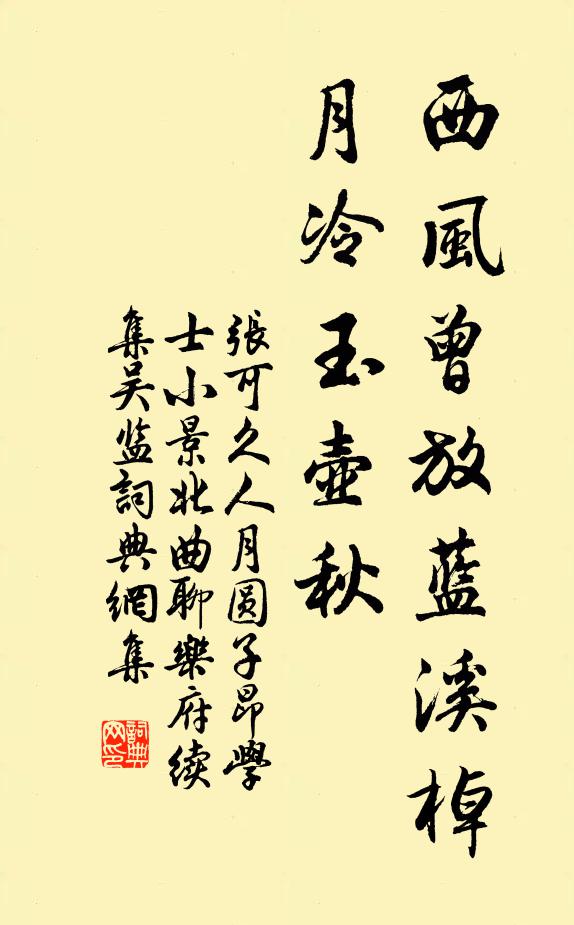 西風曾放藍溪棹
月冷玉壺秋
張可久人月圆子昂學
士小景北曲聊樂府续
集吴监詞典網集
詞典網印